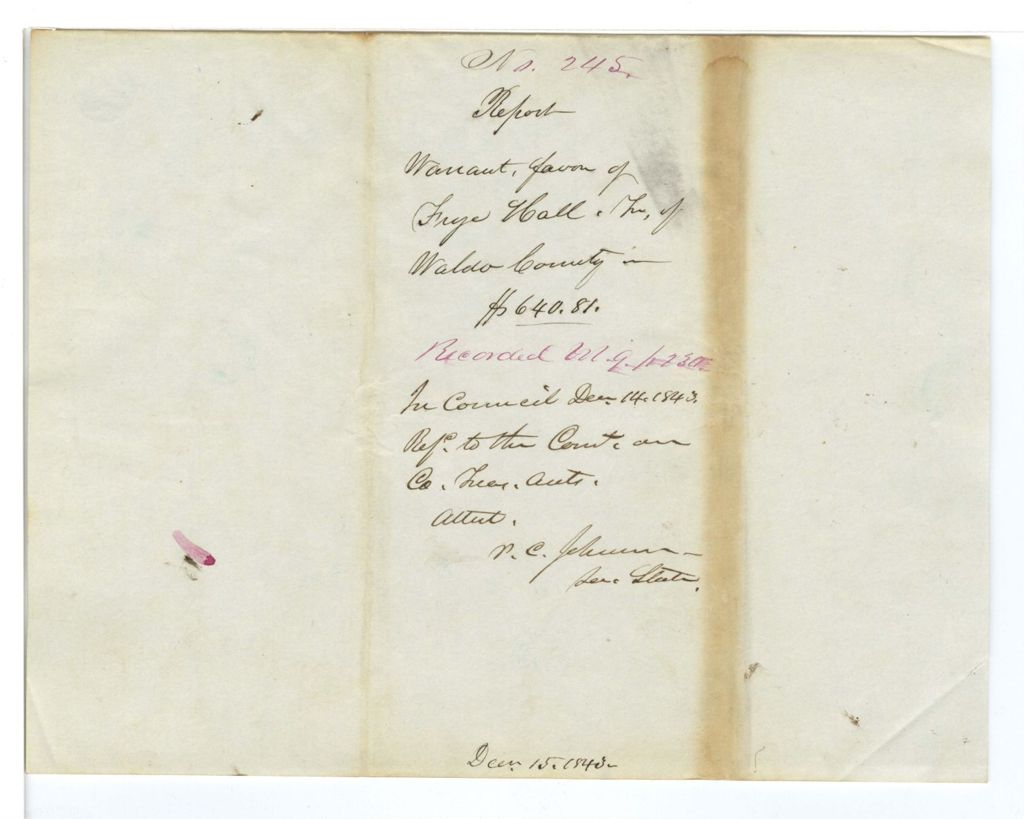 No. 245.
Report
Warrant, favor of
Frye Hall, Tr, of
Waldo County in
$640.81.
Recorded
In Council Decr. 14. 1843.
Refd. to the Comt. on
Co. Treas. Accts.
Attest.
P. C. Johnson
Sec. State.
Decr. 15. 1843.